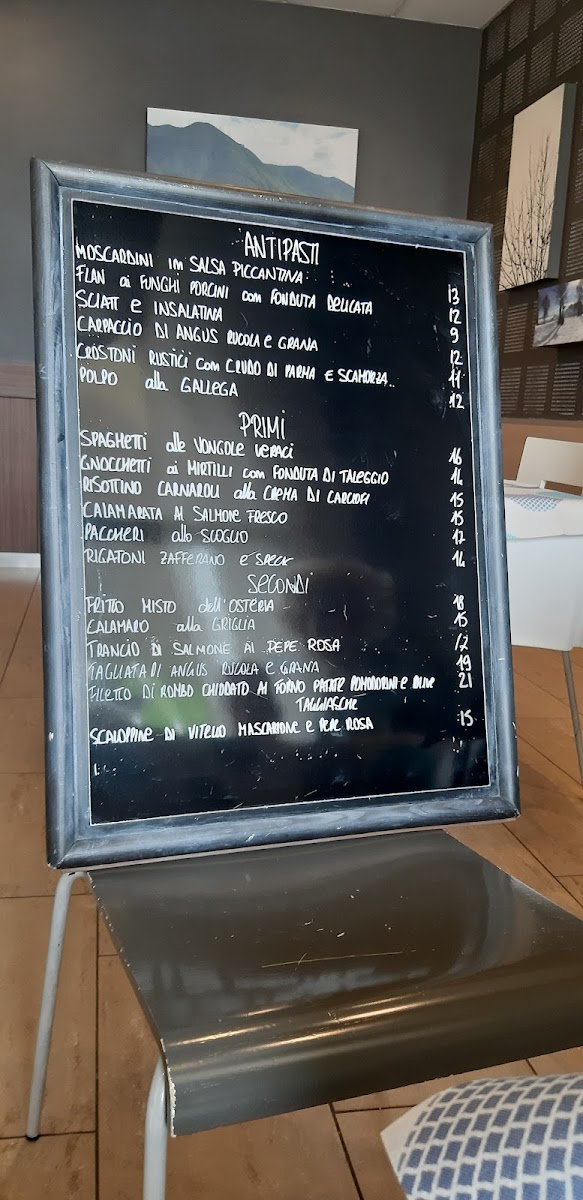 ANTIPASTI
MOSCARDINI in SALSA PICCANTINA 13
FLAN ai FUNGHI PORCINI con FONDUTA DELICATA 12
SCIATT E INSALATINA 9
CARPACCIO DI ANGUS RUCOLA E GRANA 12
CROSTONI RUSTICI con CRUDO DI PARMA E SCAMORZA.. 11
POLPO alla GALLEGA 12
PRIMI
SPAGHETTI alle VONGOLE VERACI 16
GNOCCHETTI ai MIRTILLI con FONDUTA DI TALEGGIO 14
RISOTTINO CARNAROLI alla CREMA DI CARCIOFI 15
CALAMARATA AL SALMONE FRESCO 15
PACCHERI allo SCOGLIO 17
RIGATONI ZAFFERANO E SPECK 14
SECONDI
FRITTO MISTO dell'OSTERIA 18
CALAMARO alla GRIGLIA 15
TRANCIO DI SALMONE AL PEPE ROSA 17
TAGLIATA DI ANGUS RUCOLA E GRANA 19
FILETTO DI ROMBO CHIODATO AL FORNO PATATE POMODORINI E OLIVE 21
TAGGIASCHE
SCALOPPINE DI VITELLO MASCARPONE E PEPE ROSA 15